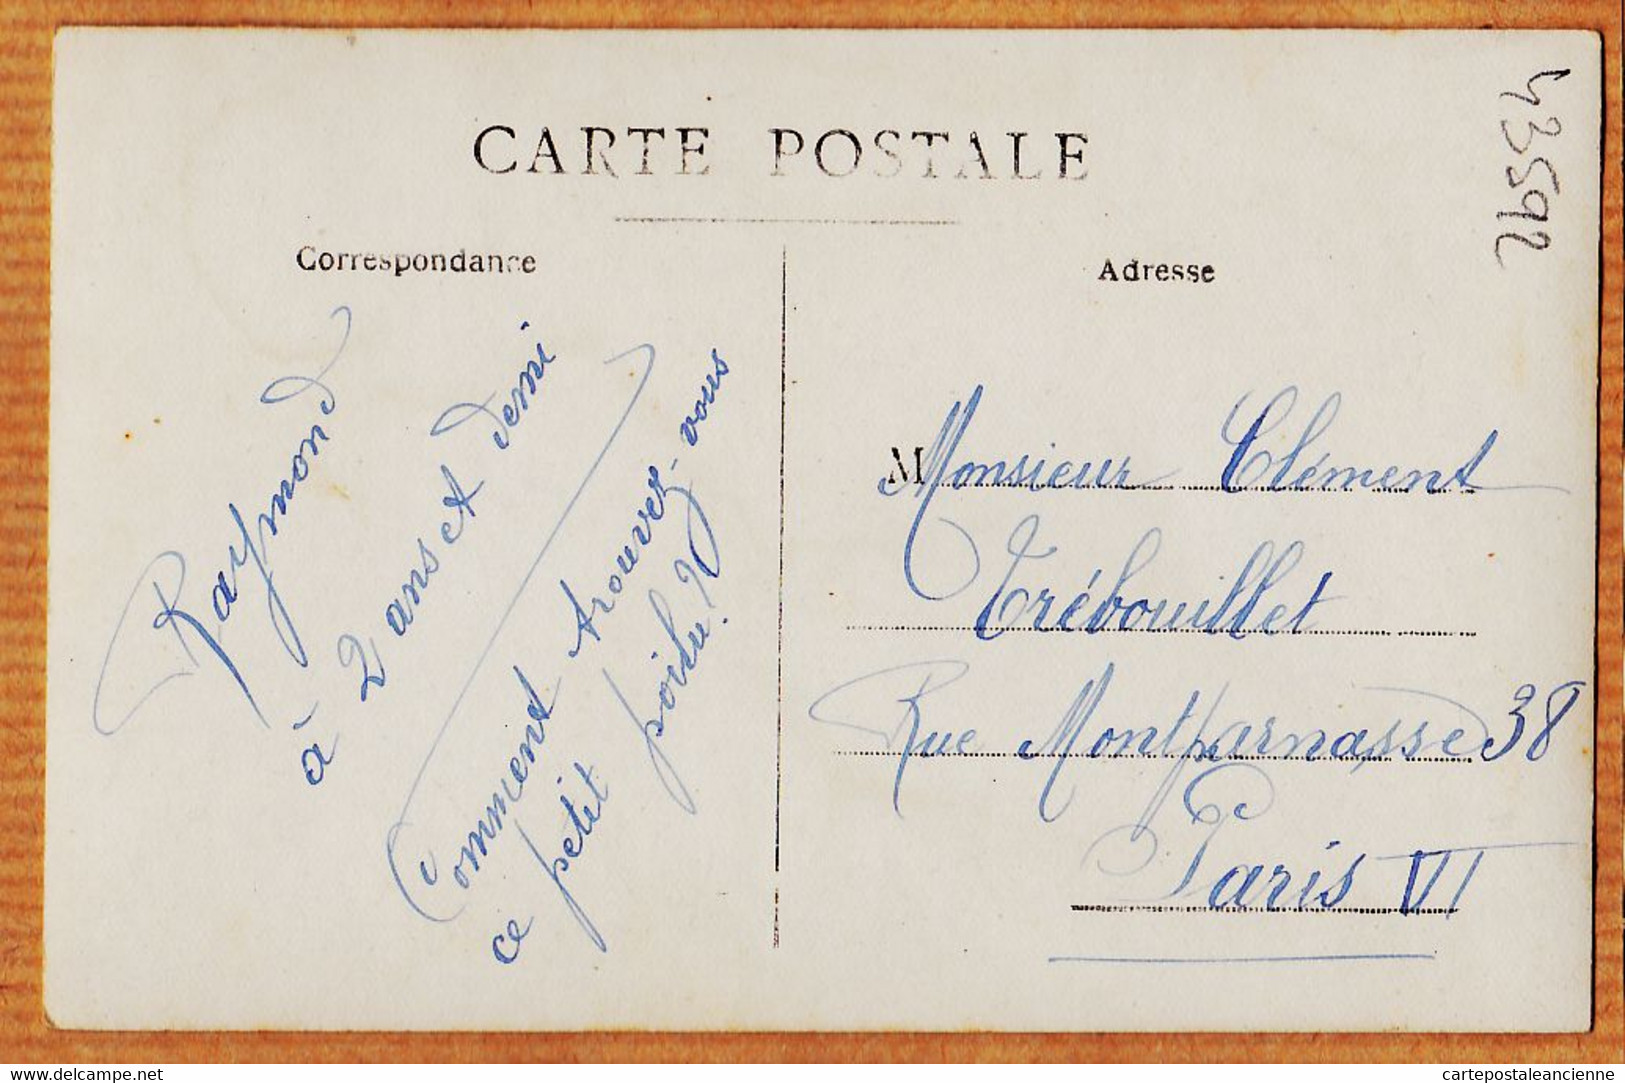 CARTE POSTALE
43592
Correspondance
Adresse
Raymond
à 2 ans et demi
Comment trouvez-vous
ce petit poilu?
Monsieur Clément
Trébouillet
Rue Montparnasse 38
Paris VI
www.delcampe.net
cartepostaleancienne